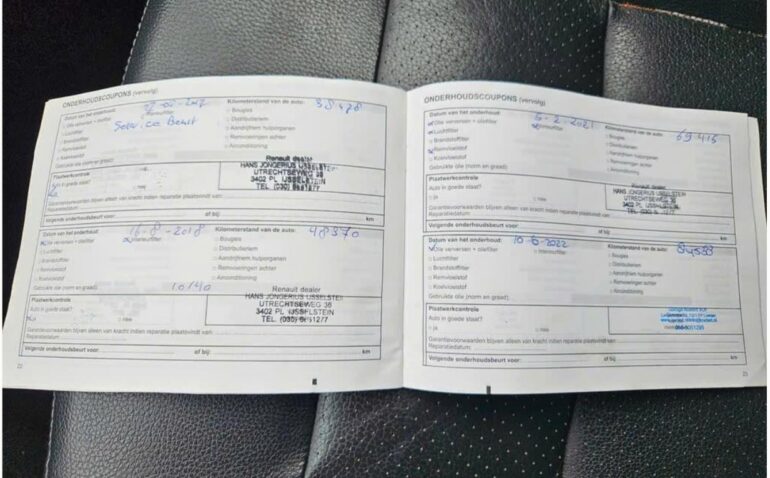 ONDERHOUDSCOUPONS (vervolg)
Datum van het onderhoud:
Kilometerstand van de auto: 38478
Olie verversen + oliefilter
Interieurfilter
Bougies
Luchtfilter
Distributieriem
Brandstoffilter
Aandrijfriem hulporganen
Remvloeistof
Remvoeringen achter
Koelvloeistof
Airconditioning
Gebruikte olie (norm en graad):
Plaatwerkcontrole
Auto in goede staat?
Ja
nee
Renault dealer
HANS JONGERIUS IJSSELSTEIN
UTRECHTSEWEG 38
3402 PL IJSSELSTEIN
TEL. (030) 6861277
Garantievoorwaarden blijven alleen van kracht indien reparatie plaatsvindt van:
Reparatiedatum:
Volgende onderhoudsbeurt voor: of bij: km
Datum van het onderhoud: 16-8-2018
Kilometerstand van de auto: 48370
Olie verversen + oliefilter
Interieurfilter
Bougies
Luchtfilter
Distributieriem
Brandstoffilter
Aandrijfriem hulporganen
Remvloeistof
Remvoeringen achter
Koelvloeistof
Airconditioning
Gebruikte olie (norm en graad): 10/40
Plaatwerkcontrole
Auto in goede staat?
nee
Renault dealer
HANS JONGERIUS IJSSELSTEIN
UTRECHTSEWEG 38
3402 PL IJSSELSTEIN
TEL. (030) 6861277
Garantievoorwaarden blijven alleen van kracht indien reparatie plaatsvindt van:
Reparatiedatum:
Volgende onderhoudsbeurt voor: of bij: km
22
ONDERHOUDSCOUPONS (vervolg)
Datum van het onderhoud: 5-2-2021
Kilometerstand van de auto: 69415
Olie verversen + oliefilter
Interieurfilter
Bougies
Luchtfilter
Distributieriem
Brandstoffilter
Aandrijfriem hulporganen
Remvloeistof
Remvoeringen achter
Koelvloeistof
Airconditioning
Gebruikte olie (norm en graad):
Plaatwerkcontrole
Auto in goede staat?
Ja
nee
Renault dealer
HANS JONGERIUS IJSSELSTEIN
UTRECHTSEWEG 38
3402 PL IJSSELSTEIN
Garantievoorwaarden blijven alleen van kracht indien reparatie plaatsvindt van:
Reparatiedatum:
Volgende onderhoudsbeurt voor: of bij: km
Datum van het onderhoud: 10-6-2022
Kilometerstand van de auto:
Olie verversen + oliefilter
Interieurfilter
Bougies
Luchtfilter
Distributieriem
Brandstoffilter
Aandrijfriem hulporganen
Remvloeistof
Remvoeringen achter
Koelvloeistof
Airconditioning
Gebruikte olie (norm en graad):
Plaatwerkcontrole
Auto in goede staat?
Ja
nee
Garantievoorwaarden blijven alleen van kracht indien reparatie plaatsvindt van:
Reparatiedatum:
Volgende onderhoudsbeurt voor: of bij: km
23